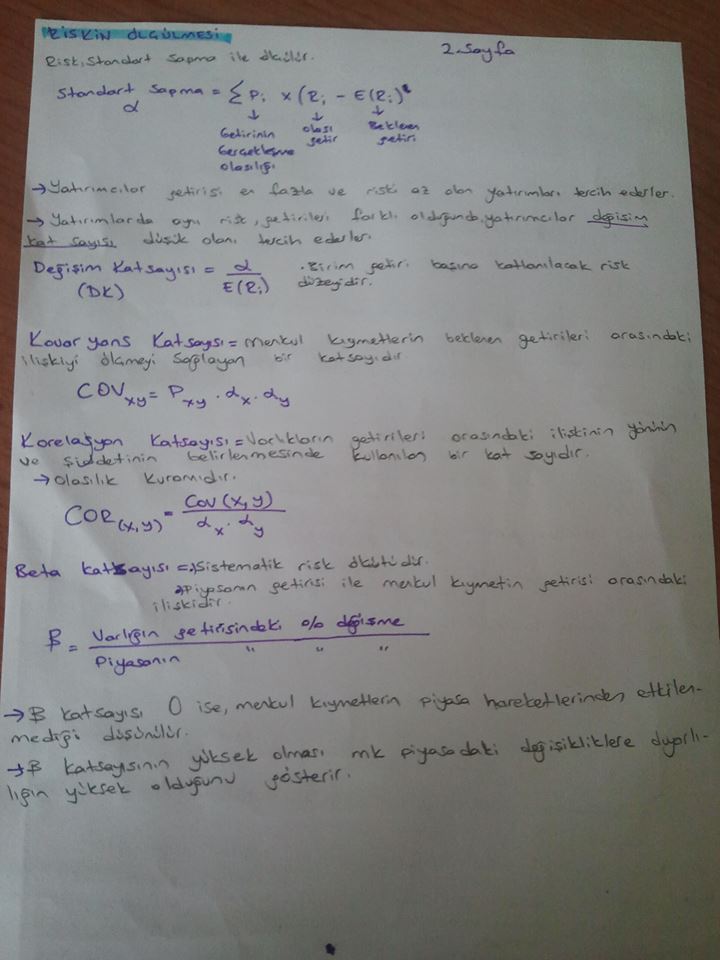 RİSKİN ÖLÇÜLMESİ
2.Sayfa
Risk, Standart sapma ile ölçülür.
Standart Sapma = Σ Pi x (Ri - E(Ri)²
α
↓ ↓ ↓
Getirinin olası Beklenen
Gerçekleşme getir getiri
olasılığı
→ Yatırımcılar getirisi en fazla ve riski az olan yatırımları tercih ederler.
→ Yatırımlarda aynı risk, getirileri farklı olduğunda, yatırımcılar değişim
kat sayısı düşük olanı tercih ederler.
Değişim Katsayısı = α / E(Ri) . Birim getiri başına katlanılacak risk
(DK) düzeyidir.
Kovaryans Katsaysı = Menkul kıymetlerin beklenen getirileri arasındaki
ilişkiyi ölçmeyi sağlayan bir katsayıdır
COVxy = Pxy . αx . αy
Korelasyon Katsayısı = Varlıkların getirileri arasındaki ilişkinin yönünün
ve şiddetinin belirlenmesinde kullanılan bir kat sayıdır.
→ Olasılık Kuramıdır.
COR(x,y) = Cov (x,y) / αx . αy
Beta katsayısı =→ Sistematik risk ölçütüdir.
→ Piyasanın getirisi ile menkul kıymetin getirisi arasındaki
ilişkidir.
β = Varlığın getirisindeki % değişme
Piyasanın " " "
→ β katsayısı 0 ise, menkul kıymetlerin piyasa hareketlerinden etkilen-
mediği düşünülür.
→ β katsayısının yüksek olması mk piyasadaki değişikliklere duyarlı-
lığın yüksek olduğunu gösterir.